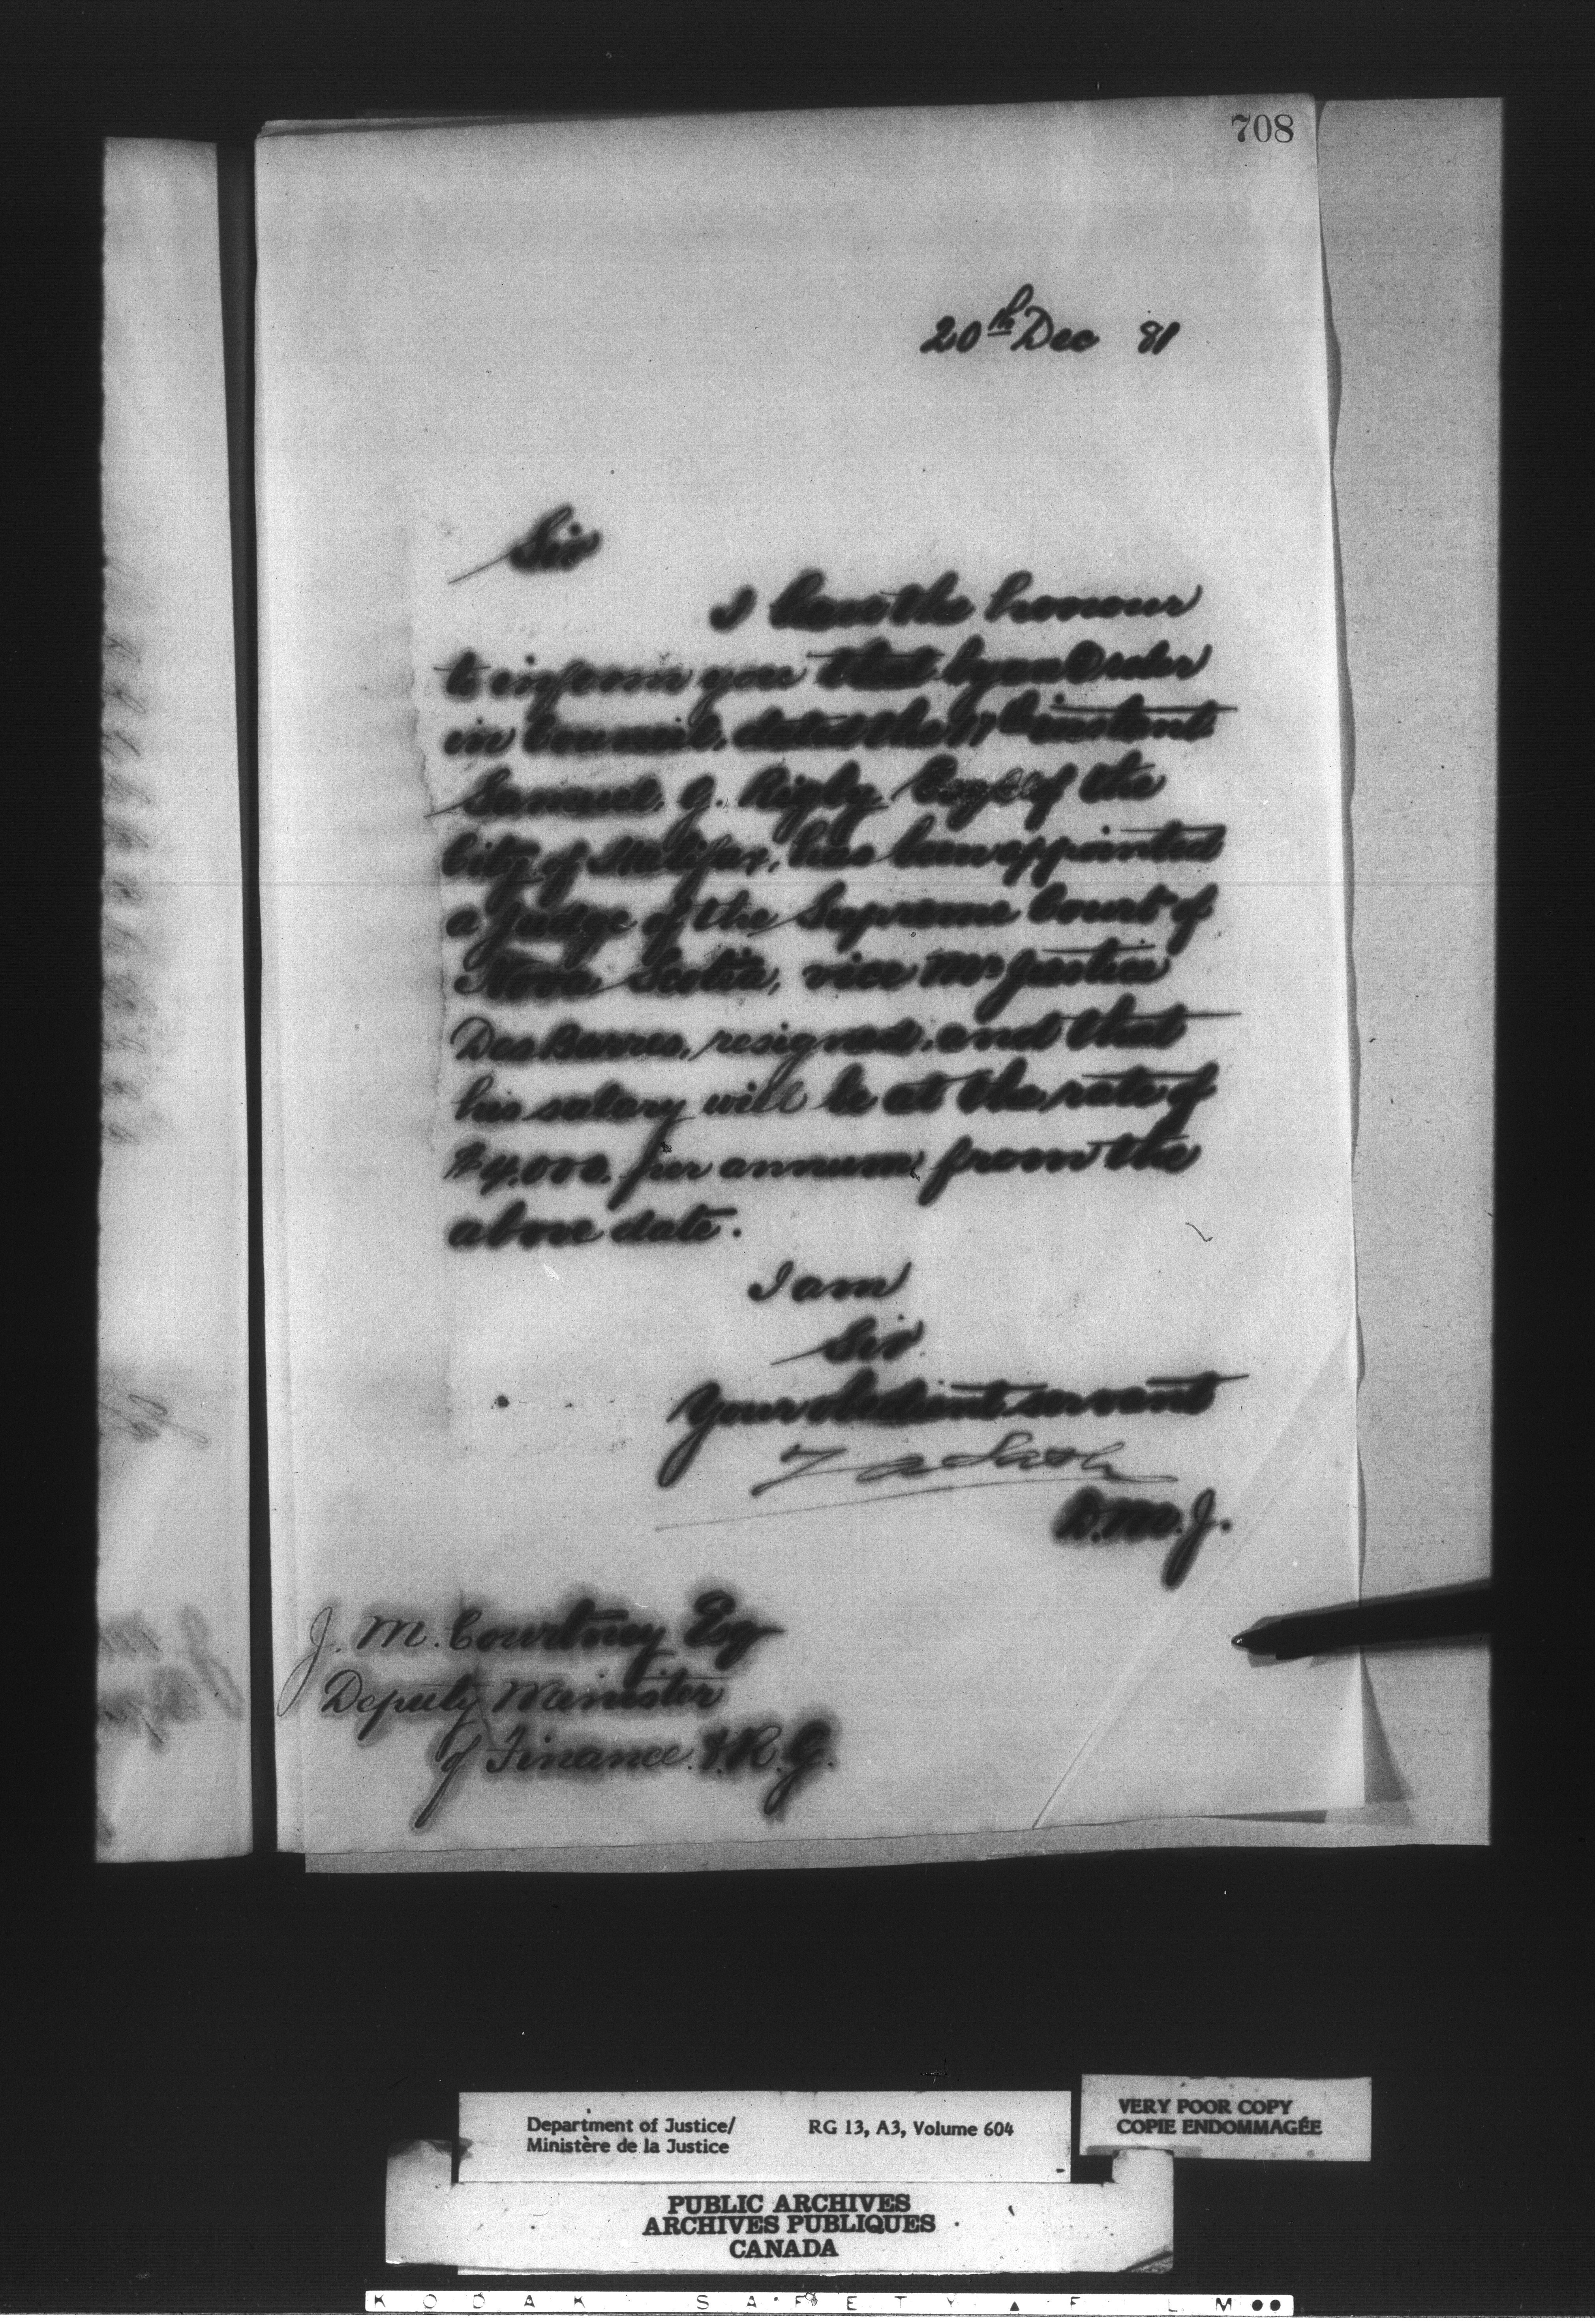 708
20th Dec 81
Sir
I have the honour
to inform you that by an Order
in Council, dated the 17th instant
Samuel G. Rigby Esqre of the
City of Halifax, has been appointed
a Judge of the Supreme Court of
Nova Scotia, vice Mr Justice
DesBarres, resigned, and that
his salary will be at the rate of
$4,000. per annum from the
above date.
I am
Sir
Your obedient servant
Z A Lash
D.M.J.
J. M. Courtney Esq
Deputy Minister
of Finance & R. G.
Department of Justice/
Ministère de la Justice
RG 13, A3, Volume 604
VERY POOR COPY
COPIE ENDOMMAGÉE
PUBLIC ARCHIVES
ARCHIVES PUBLIQUES
CANADA
KODAK SAFETY FILM